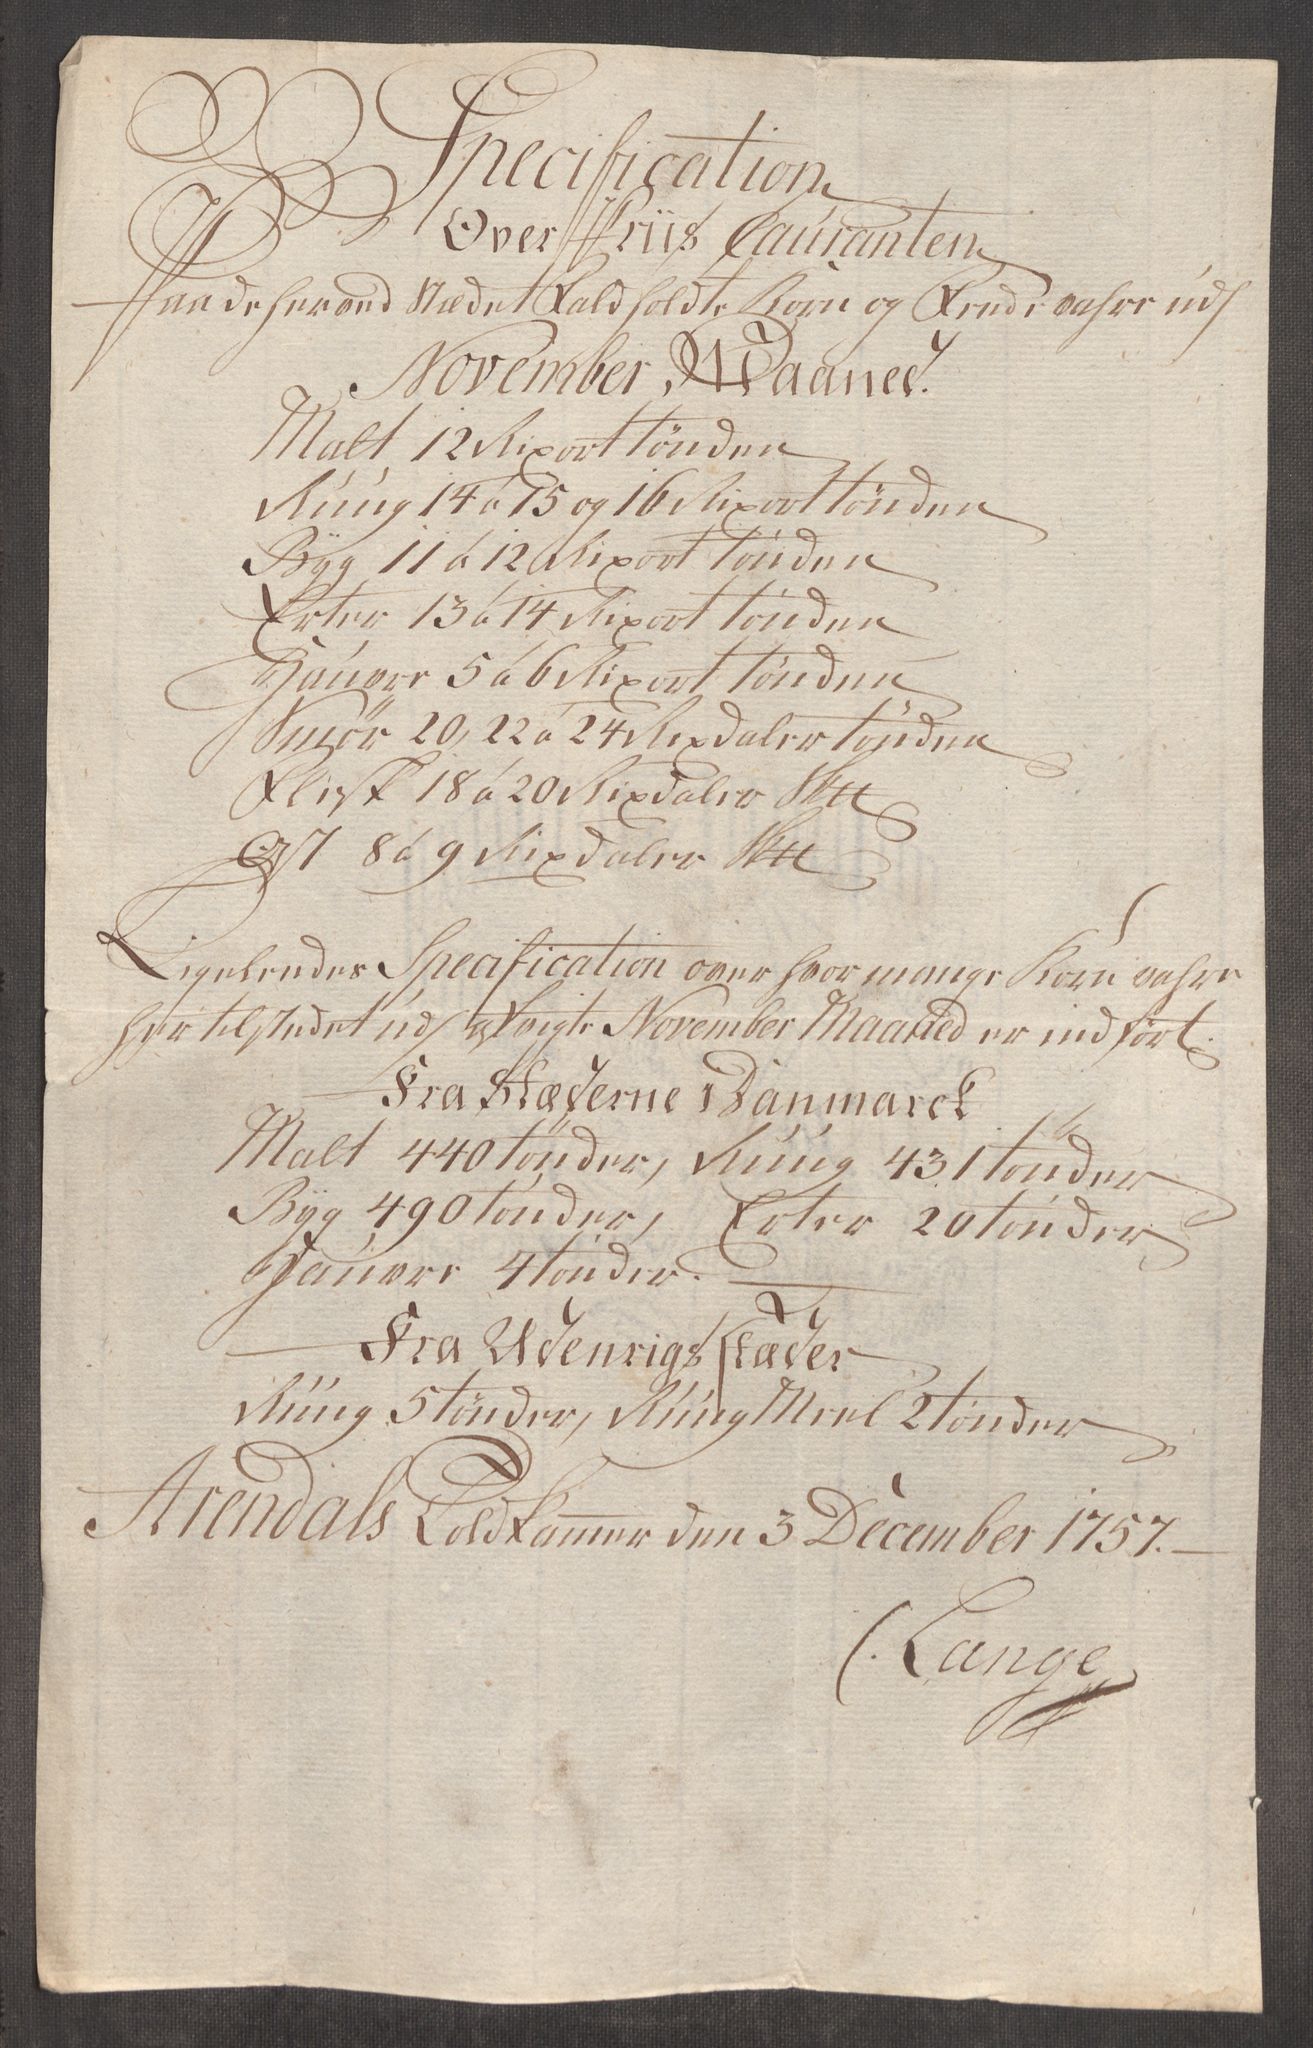 Specification
Over Priis Cauranten
Paa de her ved Stædet Faldholdte Korn og Fædevahre udj
November Maaned.
Malt 12 Rixort tönden
Rúúg 14 á 15 og 16 Rixort tönden
Býg 11 á 12 Rixort tönden
Erter 13 á 14 Rixort tönden
Haúvre 5 á 6 Rixort tönden
Smör 20, 22 á 24 Rixdaler tönden
Flesk 18 á 20 Rixdaler Sktt
Ost 8 á 9 Rixdaler Sktt
Ligeleedes Specification over hvor mange Korn vahre
her til stedet udj November Maaned er indfört.
Fra Stæderne i Danmarck
Malt 440 tönder, Rúúg 431 tönder
Býg 490 tönder, Erter 20 tönder
Haúvre 4 tönder.
Fra Udenrigs stæder
Rúúg 5 tönder, Rúúg Meel 2 tönder
Arendals Toldkammer den 3 December 1757.
C. Lange